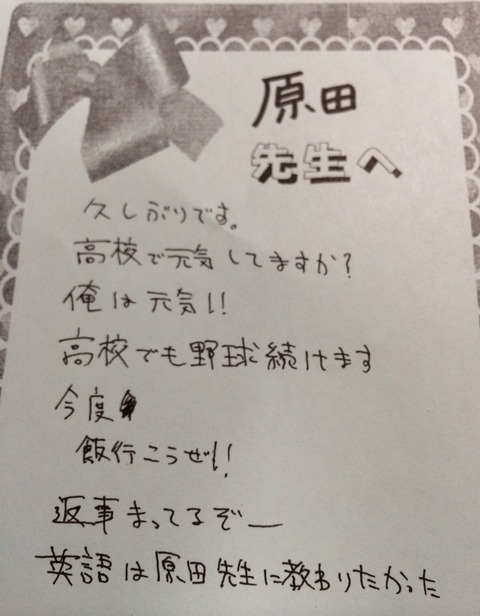 原田
先生へ
久しぶりです。
高校で元気してますか?
俺は元気!!
高校でも野球続けます
今度
飯行こうぜ!!
返事まってるぞー
英語は原田先生に教わりたかった